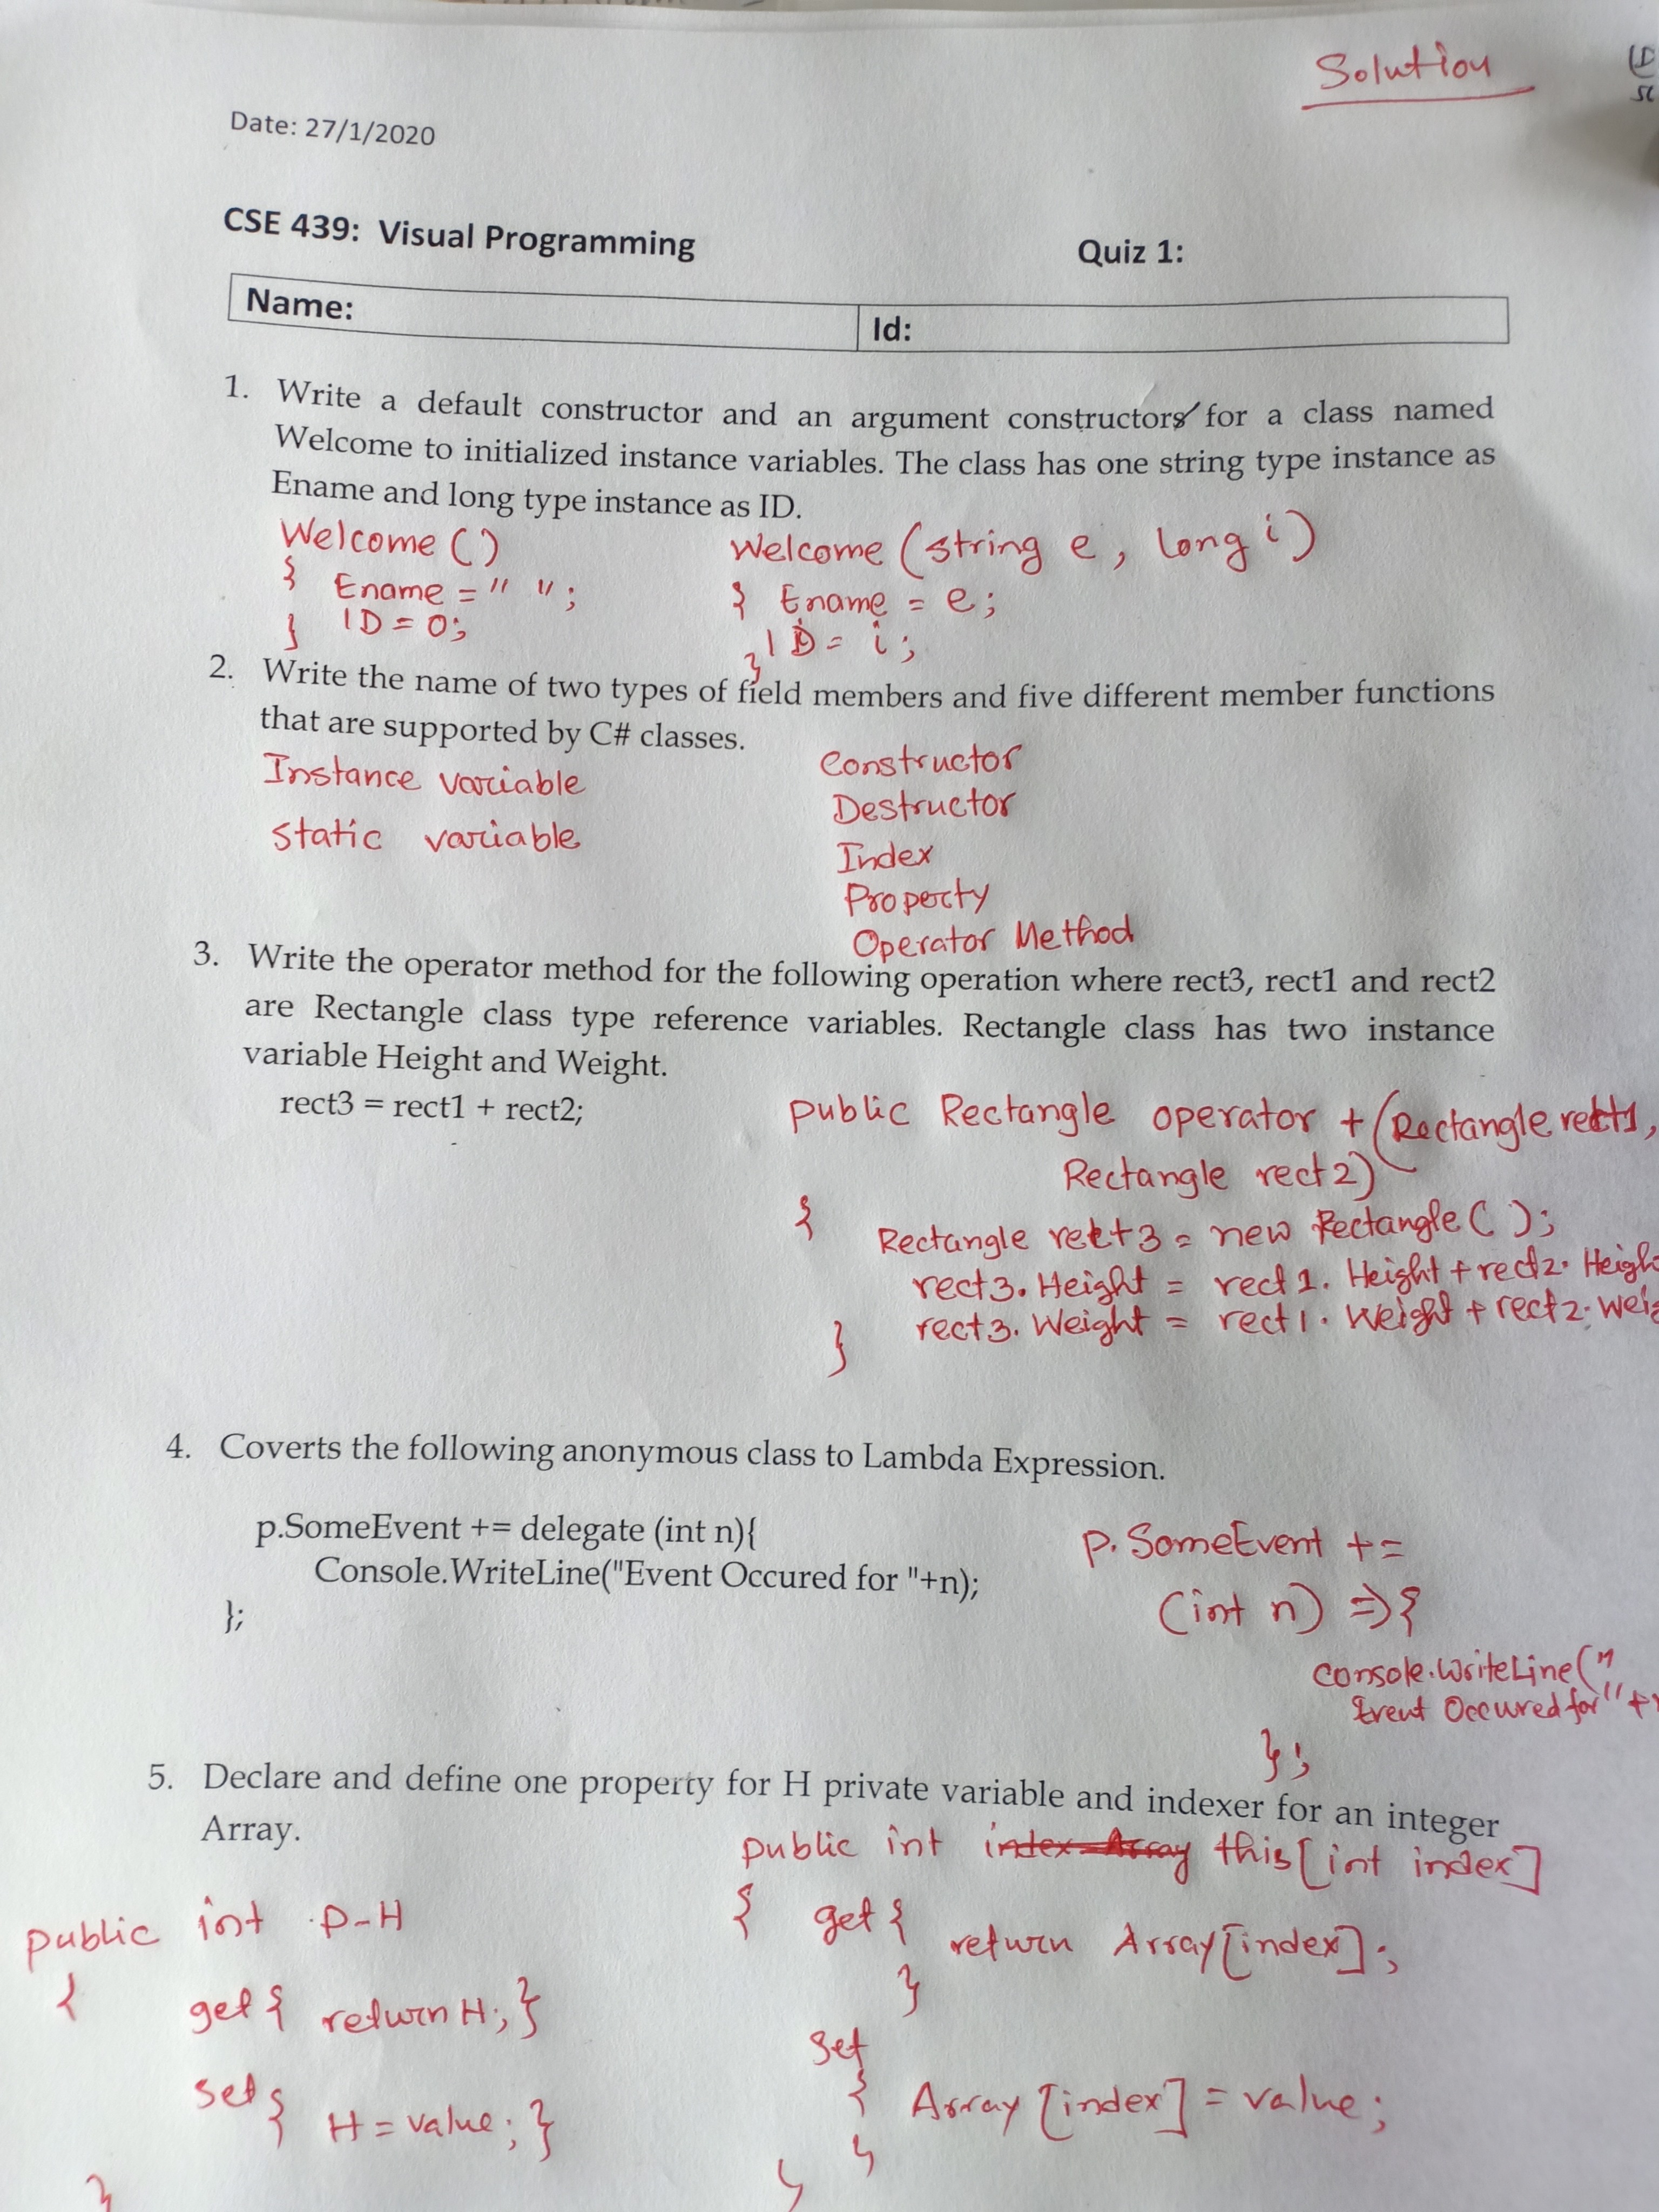 Solution
Date: 27/1/2020
CSE 439: Visual Programming Quiz 1:
Name: Id:
1. Write a default constructor and an argument constructors for a class named
Welcome to initialized instance variables. The class has one string type instance as
Ename and long type instance as ID.
Welcome () Welcome (string e, long i)
{ Ename = " "; { Ename = e;
} ID = 0; ID = i;
}
2. Write the name of two types of field members and five different member functions
that are supported by C# classes.
Instance variable Constructor
Static variable Destructor
Index
Property
Operator Method
3. Write the operator method for the following operation where rect3, rect1 and rect2
are Rectangle class type reference variables. Rectangle class has two instance
variable Height and Weight.
rect3 = rect1 + rect2; public Rectangle operator + (Rectangle rect1,
Rectangle rect2)
{ Rectangle rect3 = new Rectangle ( );
rect3. Height = rect1. Height + rect2. Heigh
rect3. Weight = rect1. Weight + rect2. Wei
}
4. Coverts the following anonymous class to Lambda Expression.
p.SomeEvent += delegate (int n){ p. SomeEvent +=
Console.WriteLine("Event Occured for "+n); (int n) => {
}; Console.WriteLine("
Event Occured for " +
};
5. Declare and define one property for H private variable and indexer for an integer
Array.
public int index Array this [int index]
public int P-H { get {
{ return Array [index];
get { return H; } }
set
set { H = value; } { Array [index] = value;
}
} }